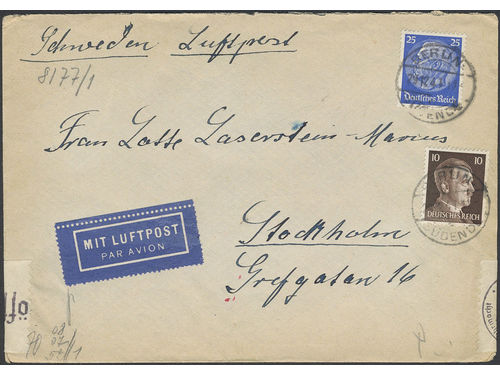 Schweden Luftpost
8177/1
25 25
Deutsches Reich
BERLIN
Frau Lotte Laserstein-Marcus
10 10
DEUTSCHES REICH
BERLIN
SÜDENDE
MIT LUFTPOST
PAR AVION
Stockholm
Grefgatan 16